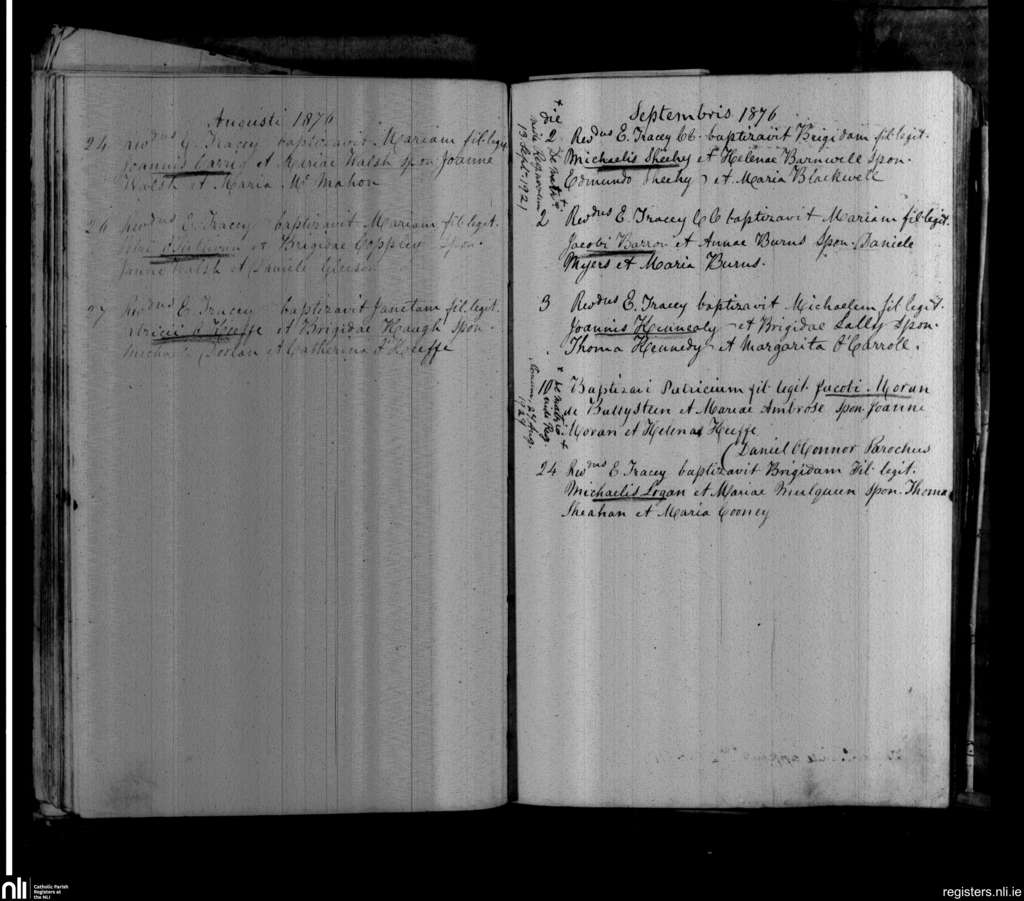 Augusti 1876
24 Revdus E. Tracey baptizavit Mariam fil legit
Joannis Carrig et Mariae Walsh spon. Joanne
Walsh et Maria Mc Mahon
26 Revdus E. Tracey baptizavit Mariam fil legit.
O'Sullivan et Brigidae spon.
Joanne Walsh et Daniele Gleeson
27 Revdus E. Tracey baptizavit fil. legit.
Patricii O'Keeffe et Brigidae Haugh spon.
Michaele et Catherina O'Keeffe
Septembris 1876
die
2 Revdus E. Tracey CC baptizavit Brigidam fil legit.
Michaelis Sheehy et Helenae Burnwell Spon.
Edmundo Sheehy et Maria Blackwell
+ De matri +
vide Reg.
13 Sept. 1921
2 Revdus E. Tracey CC baptizavit Mariam fil legit.
Jacobi Barron et Annae Burns Spon. Daniele
Myers et Maria Burns.
3 Revdus E. Tracey baptizavit Michaelem fil legit.
Joannis Hennealy et Brigidae Lally Spon.
Thoma Kennedy et Margarita O'Carroll.
10 Baptizavi Patricium fil legit Jacobi Moran
de Ballysteen et Mariae Ambrose spon Joanne
Moran et Helena Keeffe
(Daniel OConnor Parochus
+ De matrio +
vide Reg.
24 Aug.
24 Revdus E Tracey baptizavit Brigidam fil. legit.
Michaelis Logan et Mariae Mulqueen spon. Thoma
Sheahan et Maria Cooney
nli
Catholic Parish
Registers at
the NLI
registers.nli.ie